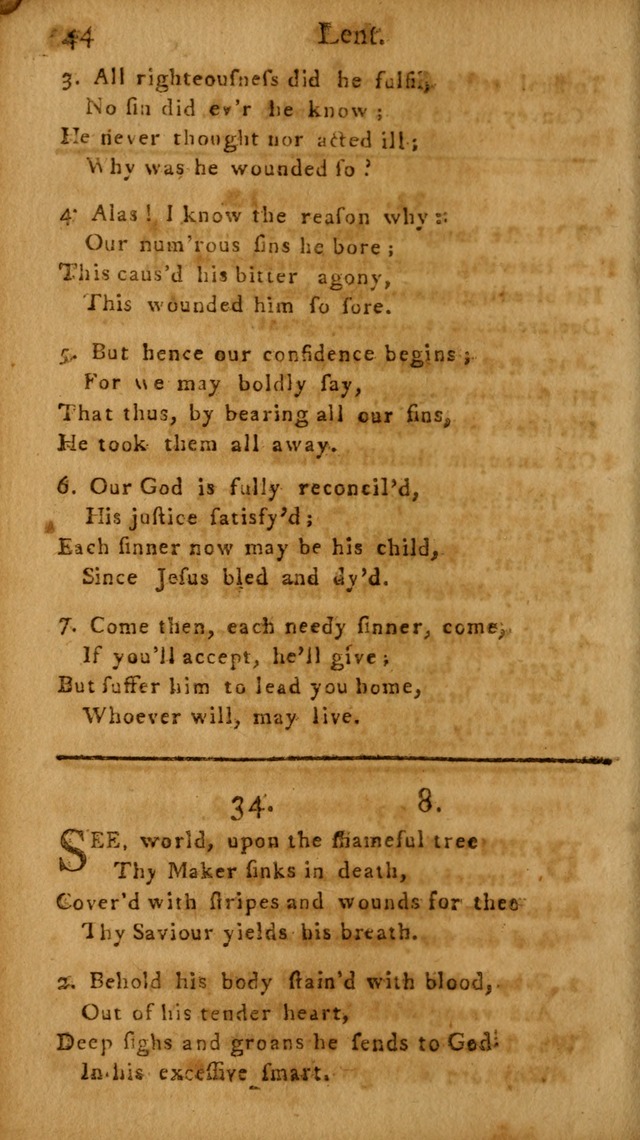 44 Lent.
3. All righteouſneſs did he fulfil,
No ſin did ev'r he know;
He never thought nor acted ill;
Why was he wounded ſo?
4. Alas! I know the reaſon why:
Our num'rous ſins he bore;
This caus'd his bitter agony,
This wounded him ſo ſore.
5. But hence our confidence begins;
For we may boldly ſay,
That thus, by bearing all our ſins,
He took them all away.
6. Our God is fully reconcil'd,
His juſtice ſatisfy'd;
Each ſinner now may be his child,
Since Jeſus bled and dy'd.
7. Come then, each needy ſinner, come,
If you'll accept, he'll give;
But ſuffer him to lead you home,
Whoever will, may live.
34. 8.
SEE, world, upon the ſhameful tree
Thy Maker ſinks in death,
Cover'd with ſtripes and wounds for thee
Thy Saviour yields his breath.
2. Behold his body ſtain'd with blood,
Out of his tender heart,
Deep ſighs and groans he ſends to God
In his exceſſive ſmart.